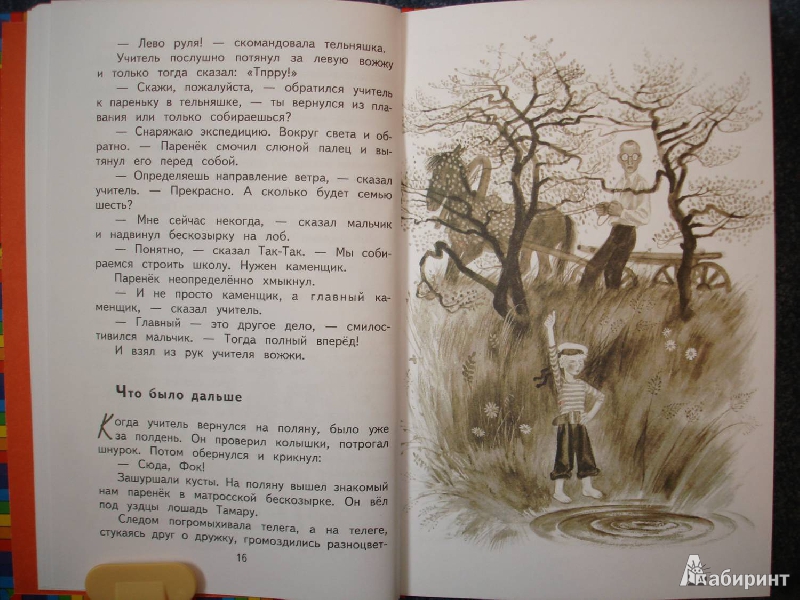 — Лево руля! — скомандовала тельняшка.
Учитель послушно потянул за левую вожжу
и только тогда сказал: «Тпрру!»
— Скажи, пожалуйста, — обратился учитель
к пареньку в тельняшке, — ты вернулся из пла-
вания или только собираешься?
— Снаряжаю экспедицию. Вокруг света и об-
ратно. — Паренёк смочил слюной палец и вы-
тянул его перед собой.
— Определяешь направление ветра, — сказал
учитель. — Прекрасно. А сколько будет семью
шесть?
— Мне сейчас некогда, — сказал мальчик
и надвинул бескозырку на лоб.
— Понятно, — сказал Так-Так. — Мы соби-
раемся строить школу. Нужен каменщик.
Паренёк неопределённо хмыкнул.
— И не просто каменщик, а главный ка-
менщик, — сказал учитель.
— Главный — это другое дело, — смилос-
тивился мальчик. — Тогда полный вперёд!
И взял из рук учителя вожжи.
Что было дальше
Когда учитель вернулся на поляну, было уже
за полдень. Он проверил колышки, потрогал
шнурок. Потом обернулся и крикнул:
— Сюда, Фок!
Зашуршали кусты. На поляну вышел знакомый
нам паренёк в матросской бескозырке. Он вёл
под уздцы лошадь Тамару.
Следом погромыхивала телега, а на телеге,
стукаясь друг о дружку, громоздились разноцвет-
16
Лабиринт